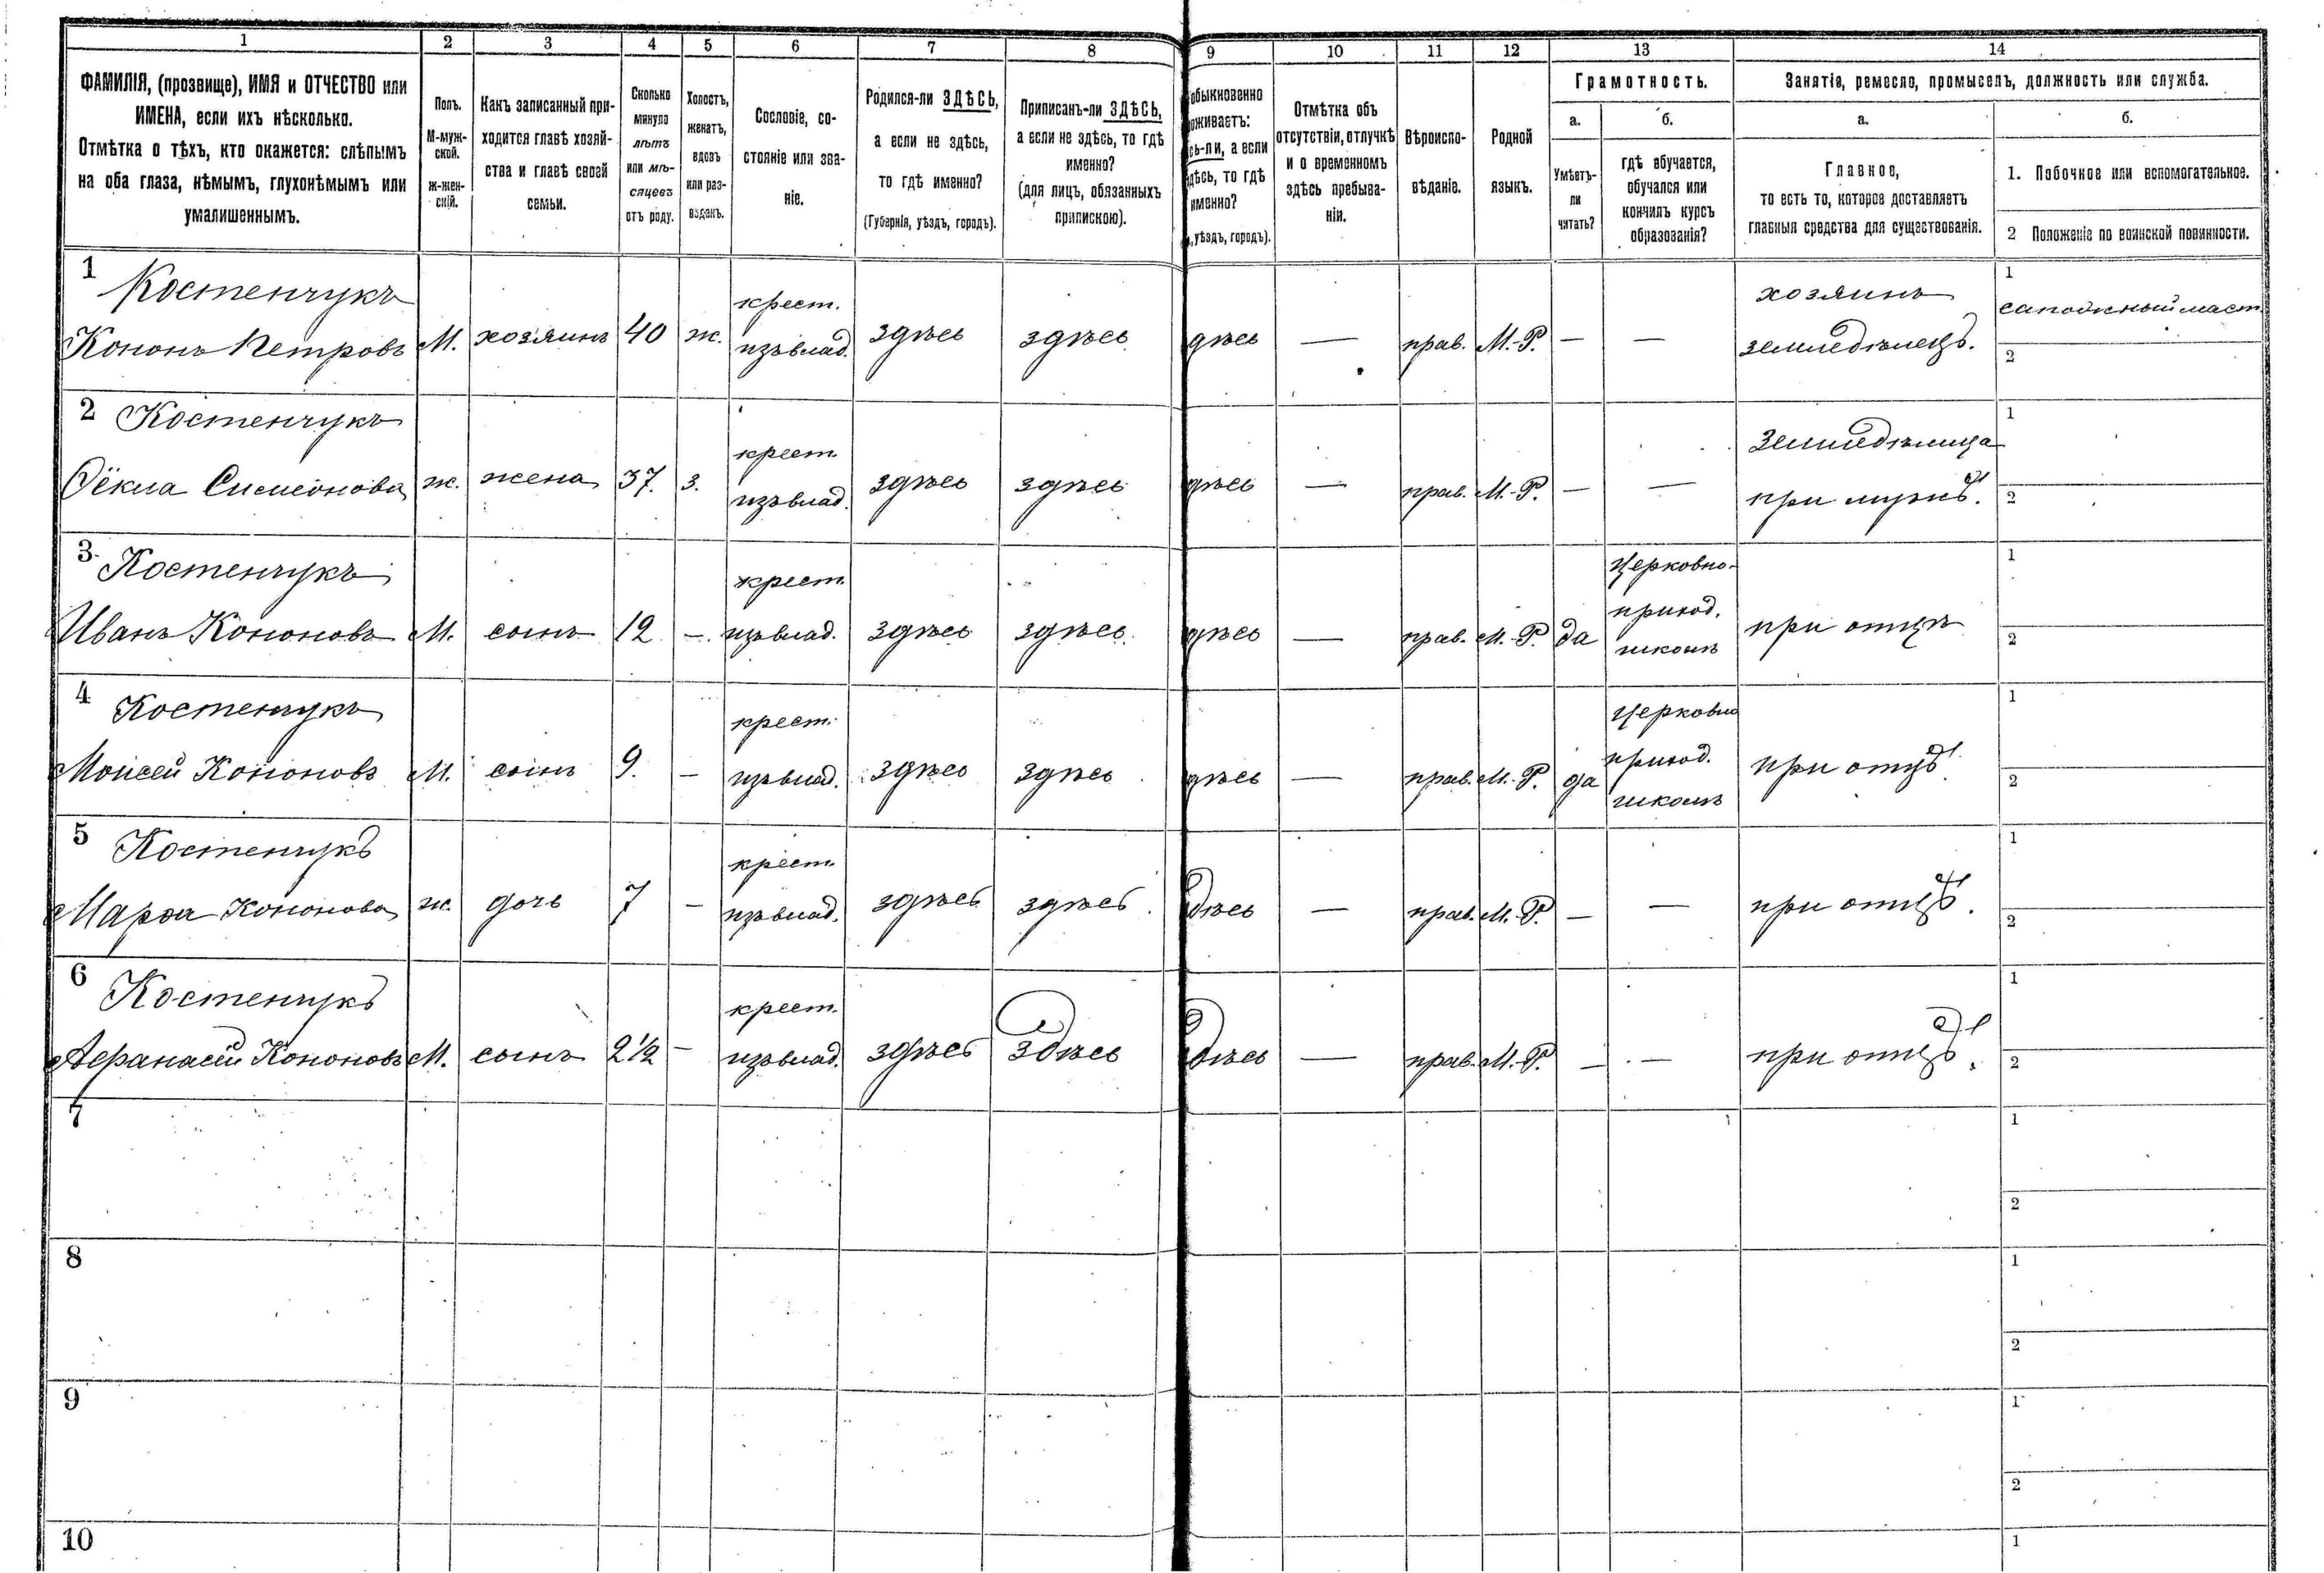 1 2 3 4 5 6 7 8 9 10 11 12 13 14
ФАМИЛІЯ, (прозвище), ИМЯ и ОТЧЕСТВО или
ИМЕНА, если ихъ нѣсколько.
Отмѣтка о тѣхъ, кто окажется: слѣпымъ
на оба глаза, нѣмымъ, глухонѣмымъ или
умалишеннымъ.
Полъ.
М-муж-
ской.
ж-жен-
скій.
Какъ записанный при-
ходится главѣ хозяй-
ства и главѣ своей
семьи.
Сколько
минуло
лѣтъ
или мѣ-
сяцевъ
отъ роду.
Холостъ,
женатъ,
вдовъ
или раз-
веденъ.
Сословіе, со-
стояніе или зва-
ніе.
Родился-ли ЗДѢСЬ,
а если не здѣсь,
то гдѣ именно?
(Губернія, уѣздъ, городъ).
Приписанъ-ли ЗДѢСЬ,
а если не здѣсь, то гдѣ
именно?
(для лицъ, обязанныхъ
припискою).
обыкновенно
оживаетъ:
сь-ли, а если
дѣсь, то гдѣ
именно?
, уѣздъ, городъ).
Отмѣтка объ
отсутствіи, отлучкѣ
и о временномъ
здѣсь пребыва-
ніи.
Вѣроиспо-
вѣданіе.
Родной
языкъ.
Грамотность.
а.
Умѣетъ-
ли
читать?
б.
гдѣ обучается,
обучался или
кончилъ курсъ
образованія?
Занятіе, ремесло, промыселъ, должность или служба.
а.
Главное,
то есть то, которое доставляетъ
главныя средства для существованія.
б.
1. Побочное или вспомогательное.
2 Положеніе по воинской повинности.
1 Костенчукъ крест. хозяинъ 1 сапожный маст.
Кононъ Петровъ М. хозяинъ 40 ж. изъ влад. здѣсь здѣсь дѣсь — прав. М.-Р. — — земледѣлецъ. 2
2 Костенчукъ крест. Земледѣлица 1
Ѳёкла Симеонова ж. жена 37. з. изъ влад. здѣсь здѣсь дѣсь — прав. М.-Р. — — при мужѣ. 2
3. Костенчукъ крест. Церковно- 1
Иванъ Кононовъ М. сынъ 12 —. изъ влад. здѣсь здѣсь. дѣсь — прав. М.-Р. да приход. при отцѣ 2
школѣ
4 Костенчукъ крест. Церковно 1
Моисей Кононовъ М. сынъ 9. — изъ влад. здѣсь здѣсь дѣсь — прав. М.-Р. да приход. при отцѣ. 2
школѣ
5 Костенчукъ крест. 1
Марѳа Кононова ж. дочь 7 — изъ влад. здѣсь здѣсь. дѣсь — прав. М.-Р. — — при отцѣ. 2
6 Костенчукъ крест. 1
Аѳанасій Кононовъ М. сынъ 2 1/2 — изъ влад. здѣсь здѣсь дѣсь — прав. М.-Р. — — при отцѣ. 2
7 1
2
8 1
2
9 1
2
10 1